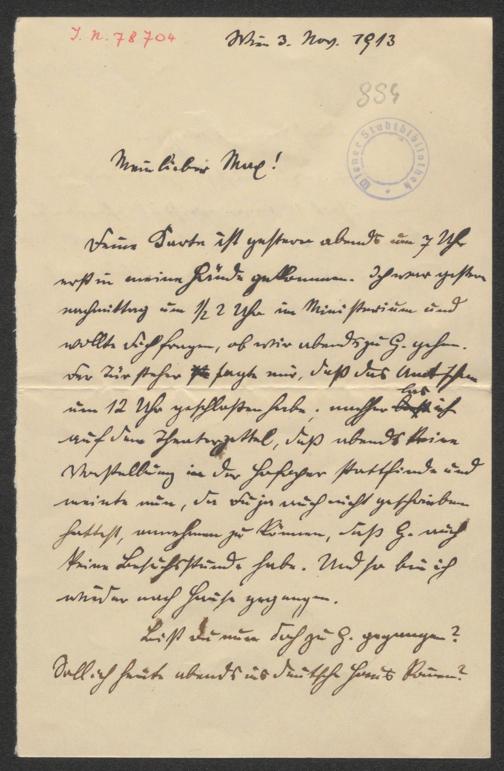 I. N. 78704
Wien 3. Nov. 1913
884
Wiener Stadtbibliothek
Mein lieber Max!
Deine Karte ist gestern abends um 7 Uhr
erst in meine Hände gekommen. Ich war gestern
nachmittag um 1/2 2 Uhr im Ministerium und
wollte dich fragen, ob wir abends zu G. gehen.
Der Türsteher sagte mir, daß das Amt schon
um 12 Uhr geschloßen habe; nachher las ich
auf dem Theaterzettel, daß abends keine
Vorstellung in der Hofoper stattfinde und
meinte nun, da Du ja auch nicht geschrieben
hattest, annehmen zu können, daß G. auch
keine Besuchsstunde habe. Und so bin ich
wieder nach Hause gegangen.
Bist Du nun doch zu G. gegangen?
Soll ich heute abends ins deutsche Haus kommen?